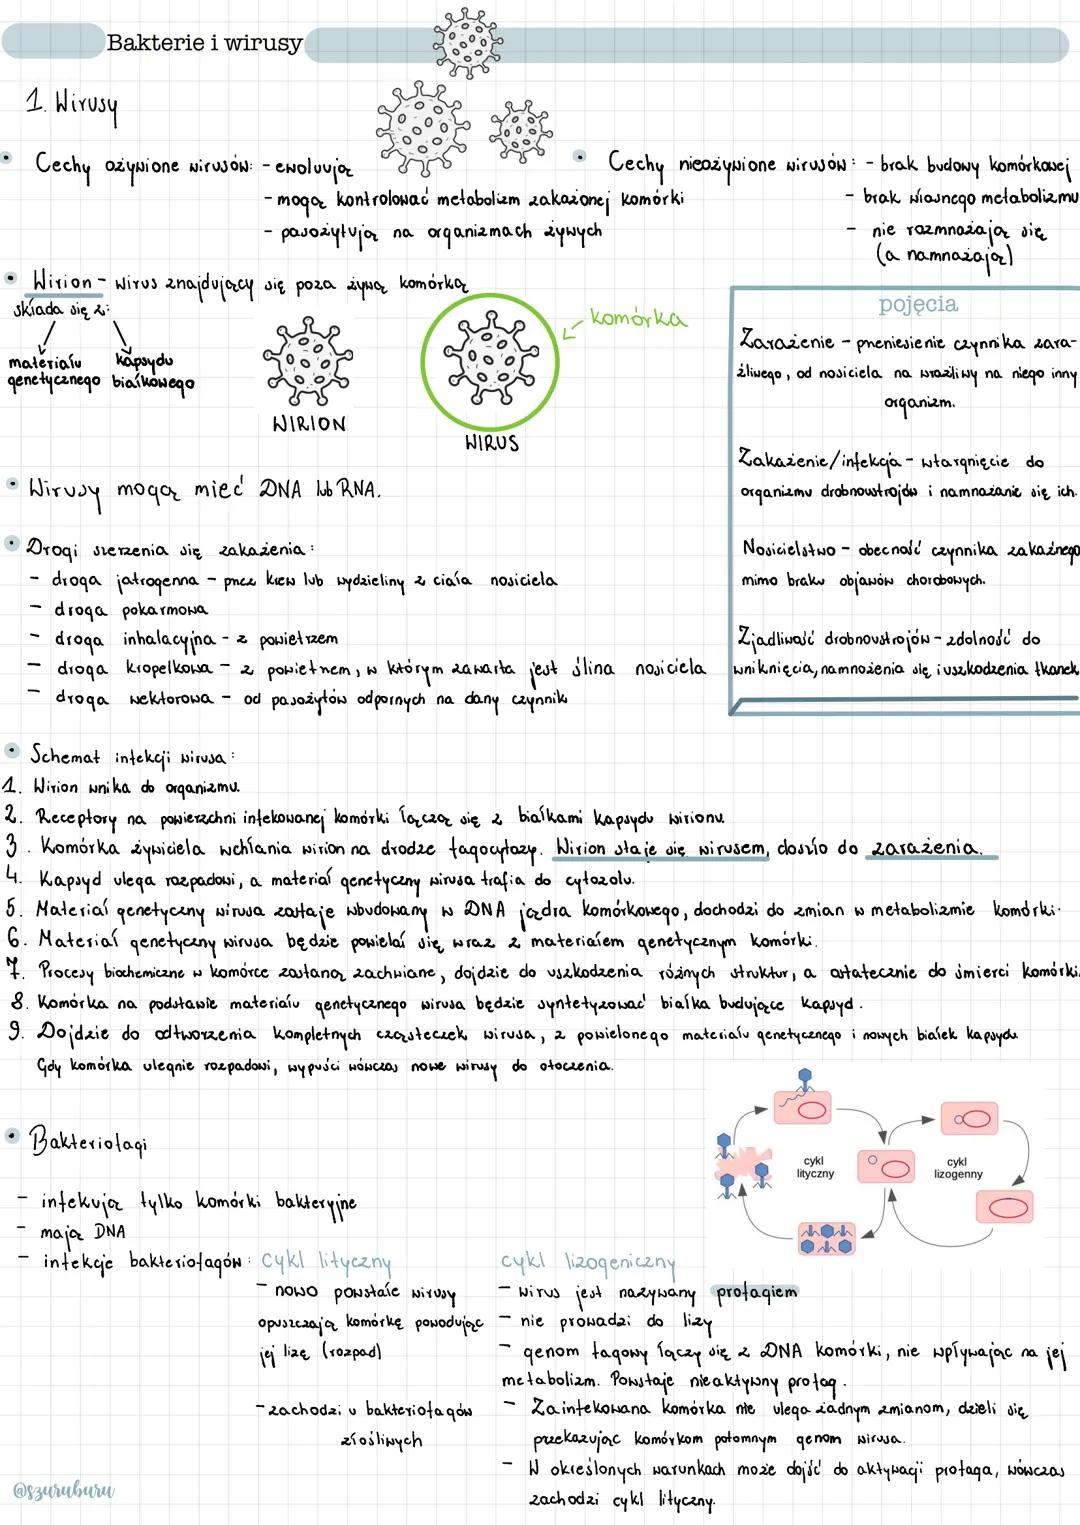 Bakterie i wirusy
1. Wirusy
• Cechy ożywione wirusów: - ewoluują
- mogą kontrolować metabolizm zakażonej komórki
- pasożytują na organizmach żywych
• Cechy nieożywione wirusów: - brak budowy komórkowej
- brak własnego metabolizmu
- nie rozmnażają się
(a namnażają)
• Wirion - wirus znajdujący się poza żywą komórką
składa się z:
materiału genetycznego
kapsydu białkowego
WIRION
WIRUS
komórka
pojęcia
Zarażenie - przeniesienie czynnika zara-
źliwego, od nosiciela na wrażliwy na niego inny
organizm.
Zakażenie/infekcja - wtargnięcie do
organizmu drobnoustrojów i namnażanie się ich.
Nosicielstwo - obecność czynnika zakaźnego
mimo braku objawów chorobowych.
Zjadliwość drobnoustrojów - zdolność do
wniknięcia, namnożenia się i uszkodzenia tkanek
• Wirusy mogą mieć DNA lub RNA.
• Drogi szerzenia się zakażenia:
- droga jatrogenna - przez krew lub wydzieliny z ciała nosiciela
- droga pokarmowa
- droga inhalacyjna - z powietrzem
- droga kropelkowa - z powietrzem, w którym zawarta jest ślina nosiciela
- droga wektorowa - od pasożytów odpornych na dany czynnik
• Schemat infekcji wirusa:
1. Wirion wnika do organizmu.
2. Receptory na powierzchni infekowanej komórki łączą się z białkami kapsydu wirionu
3. Komórka żywiciela wchłania wirion na drodze fagocytozy. Wirion staje się wirusem, doszło do zarażenia.
4. Kapsyd ulega rozpadowi, a materiał genetyczny wirusa trafia do cytozolu.
5. Materiał genetyczny wirusa zostaje wbudowany w DNA jądra komórkowego, dochodzi do zmian w metabolizmie komórki.
6. Materiał genetyczny wirusa będzie powielał się wraz z materiałem genetycznym komórki.
7. Procesy biochemiczne w komórce zostaną zachwiane, dojdzie do uszkodzenia różnych struktur, a ostatecznie do śmierci komórki.
8. Komórka na podstawie materiału genetycznego wirusa będzie syntetyzować białka budujące kapsyd.
9. Dojdzie do odtworzenia kompletnych cząsteczek wirusa, z powielonego materiału genetycznego i nowych białek kapsydu
Gdy komórka ulegnie rozpadowi, wypuści wówczas nowe wirusy do otoczenia.
• Bakteriofagi
- infekują tylko komórki bakteryjne
- mają DNA
- infekcje bakteriofagów:
cykl lityczny
cykl lizogenny
cykl lityczny
- nowo powstałe wirusy
opuszczają komórkę powodując
jej lizę (rozpad)
- zachodzi u bakteriofagów
złośliwych
cykl lizogeniczny
- wirus jest nazywany profagiem
- nie prowadzi do lizy
- genom fagowy łączy się z DNA komórki, nie wpływając na jej
metabolizm. Powstaje nieaktywny profag.
- Zainfekowana komórka nie ulega żadnym zmianom, dzieli się
przekazując komórkom potomnym genom wirusa.
- W określonych warunkach może dojść do aktywacji profaga, wówczas
zachodzi cykl lityczny.
@szuruburu